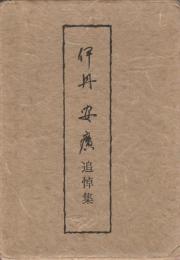 伊丹安廣追悼集